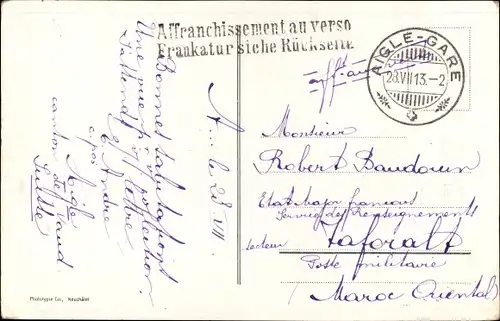 Affranchissement au verso
Frankatur siehe Rückseite
AIGLE-GARE
28.VII.13.-2
A... le 28 VII
Bonnes salutations
Une
J'attends v/ lettre
André
Aigle
canton de Vaud
Suisse
Monsieur
Robert Baudouin
Etat Major français
Service des Renseignements
secteur Taforalt
Poste militaire
Maroc Oriental
Phototypie Co., Neuchâtel